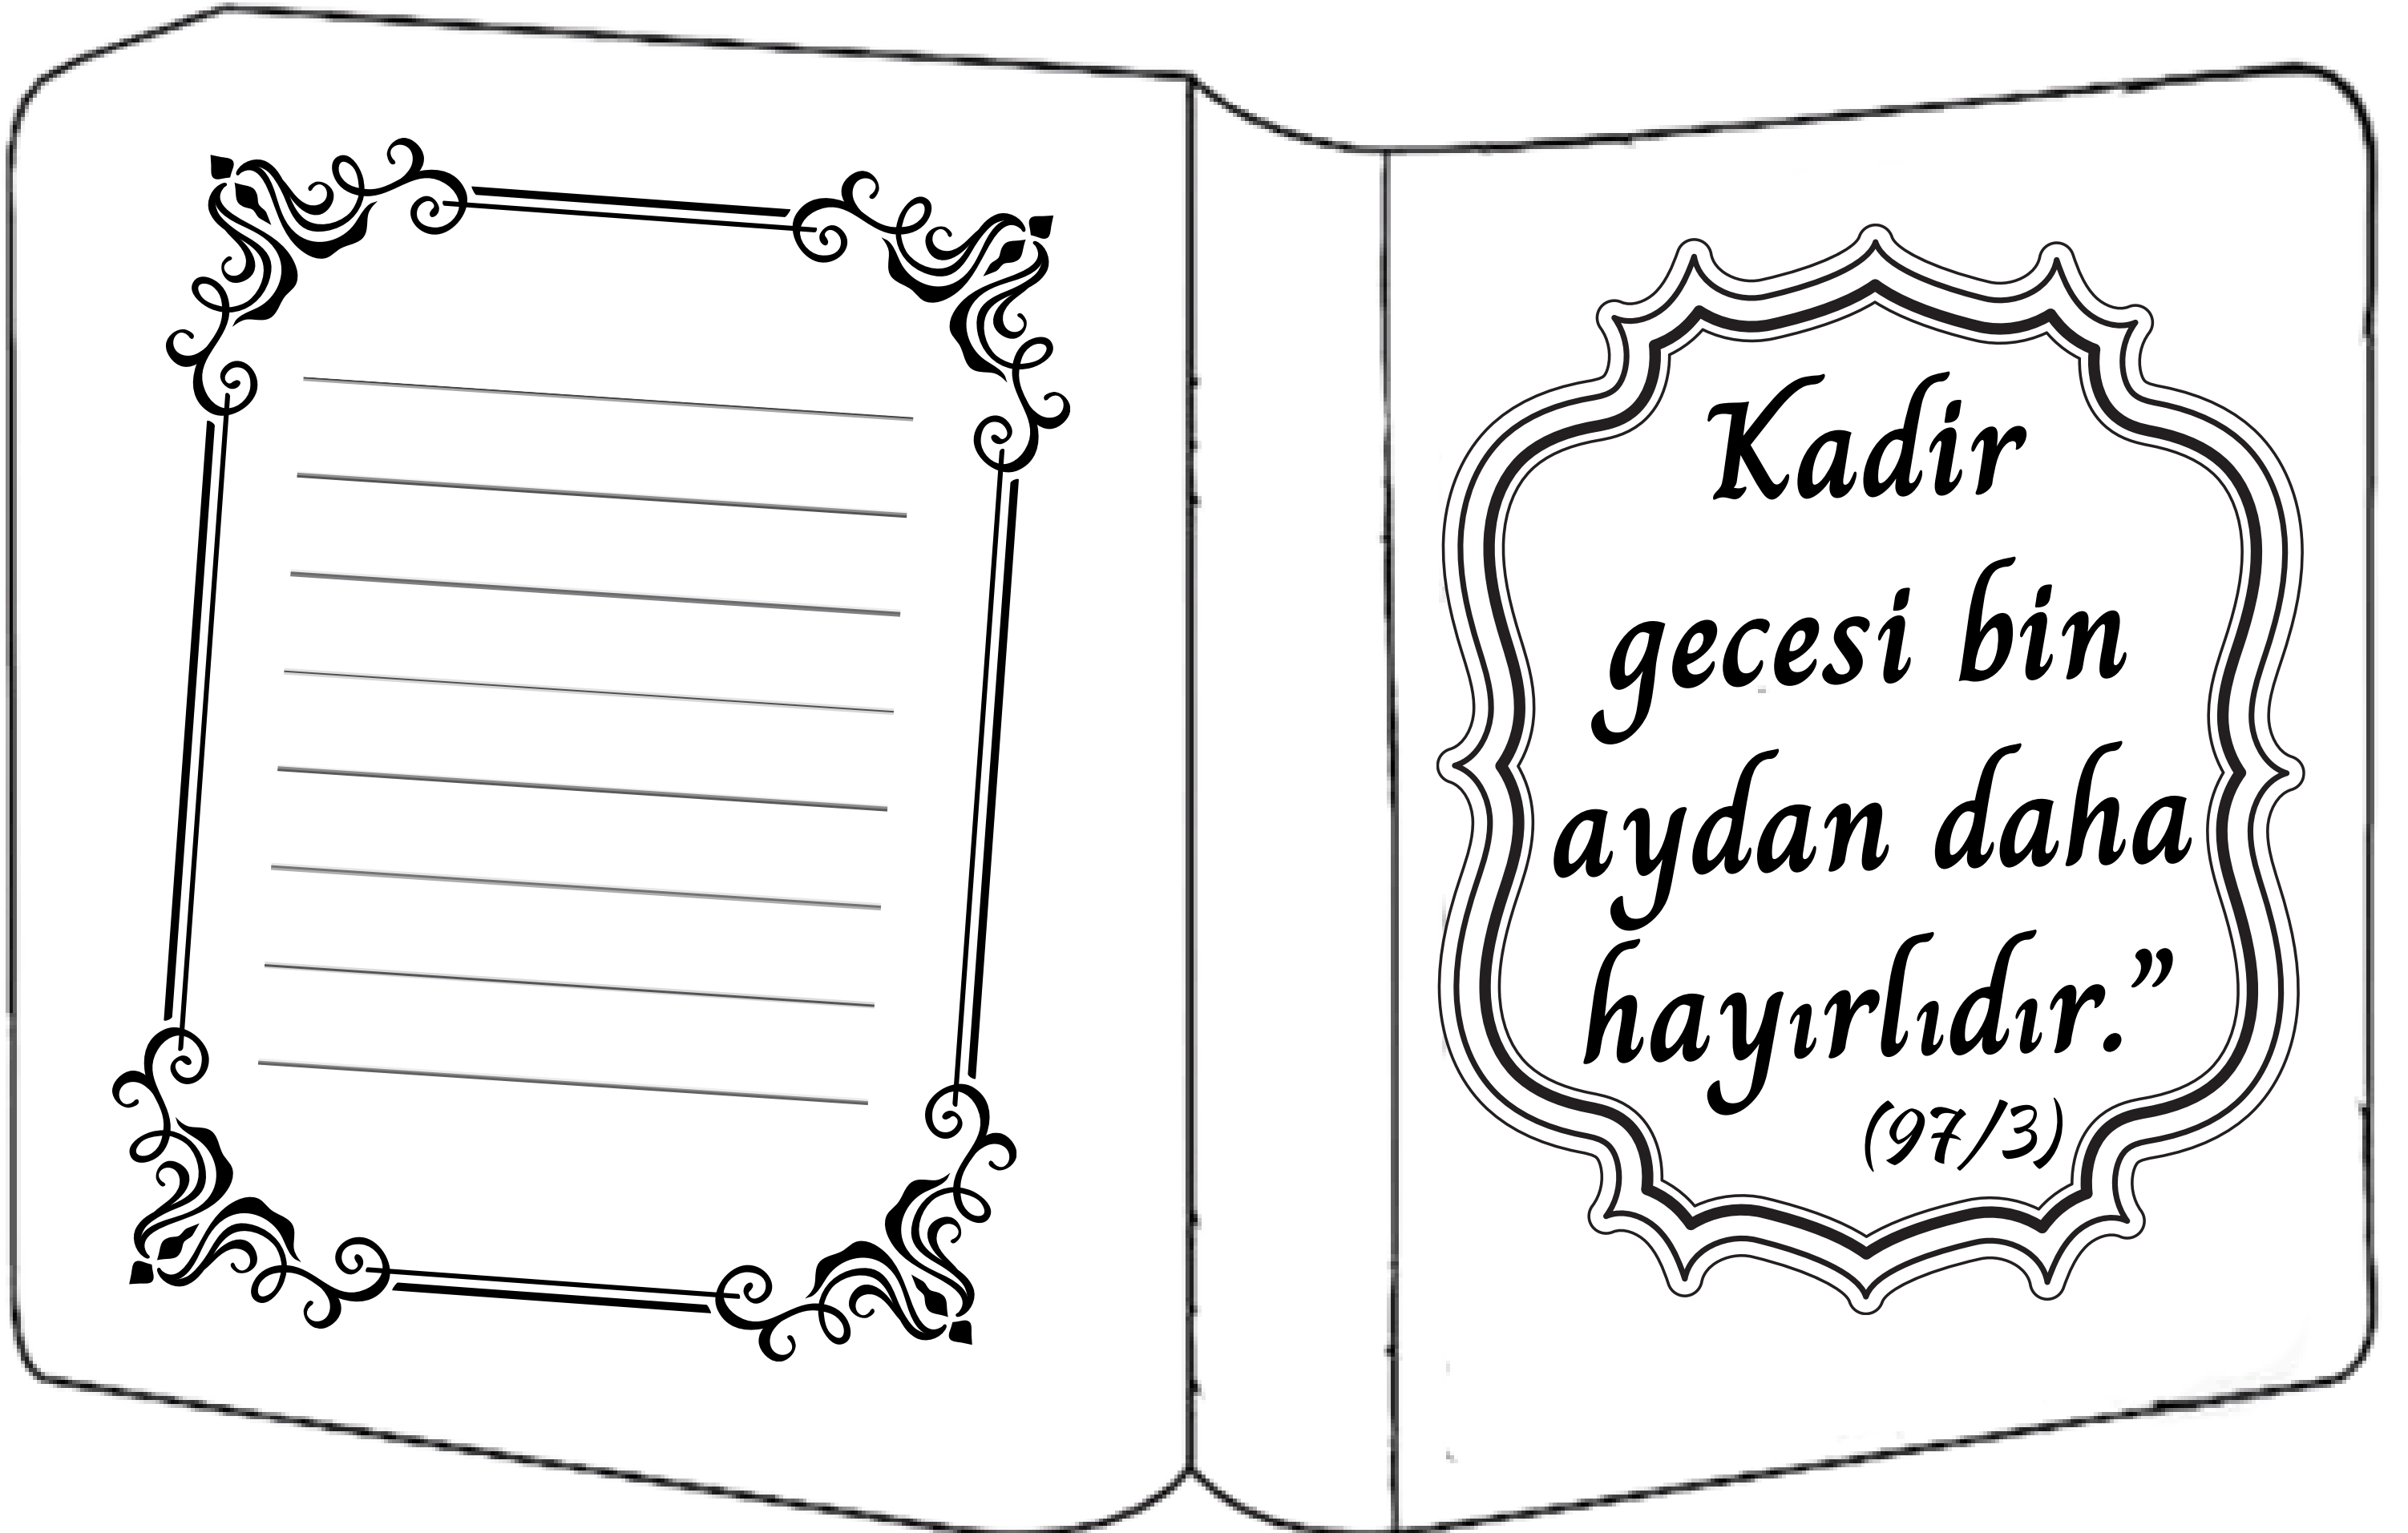 Kadir
gecesi bin
aydan daha
hayırlıdır.”
(97/3)